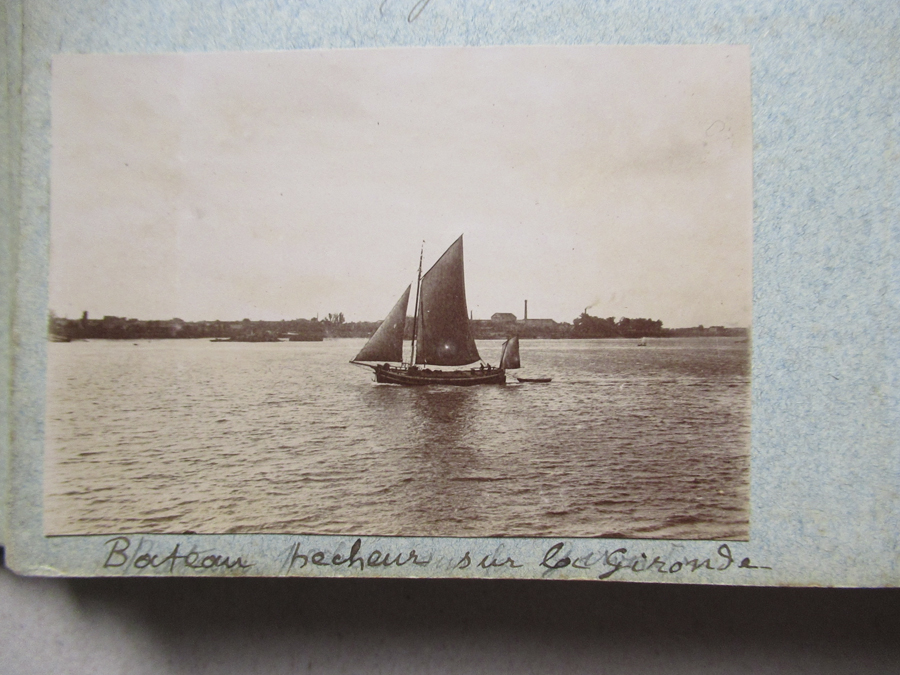 Bateau pecheur sur la Gironde